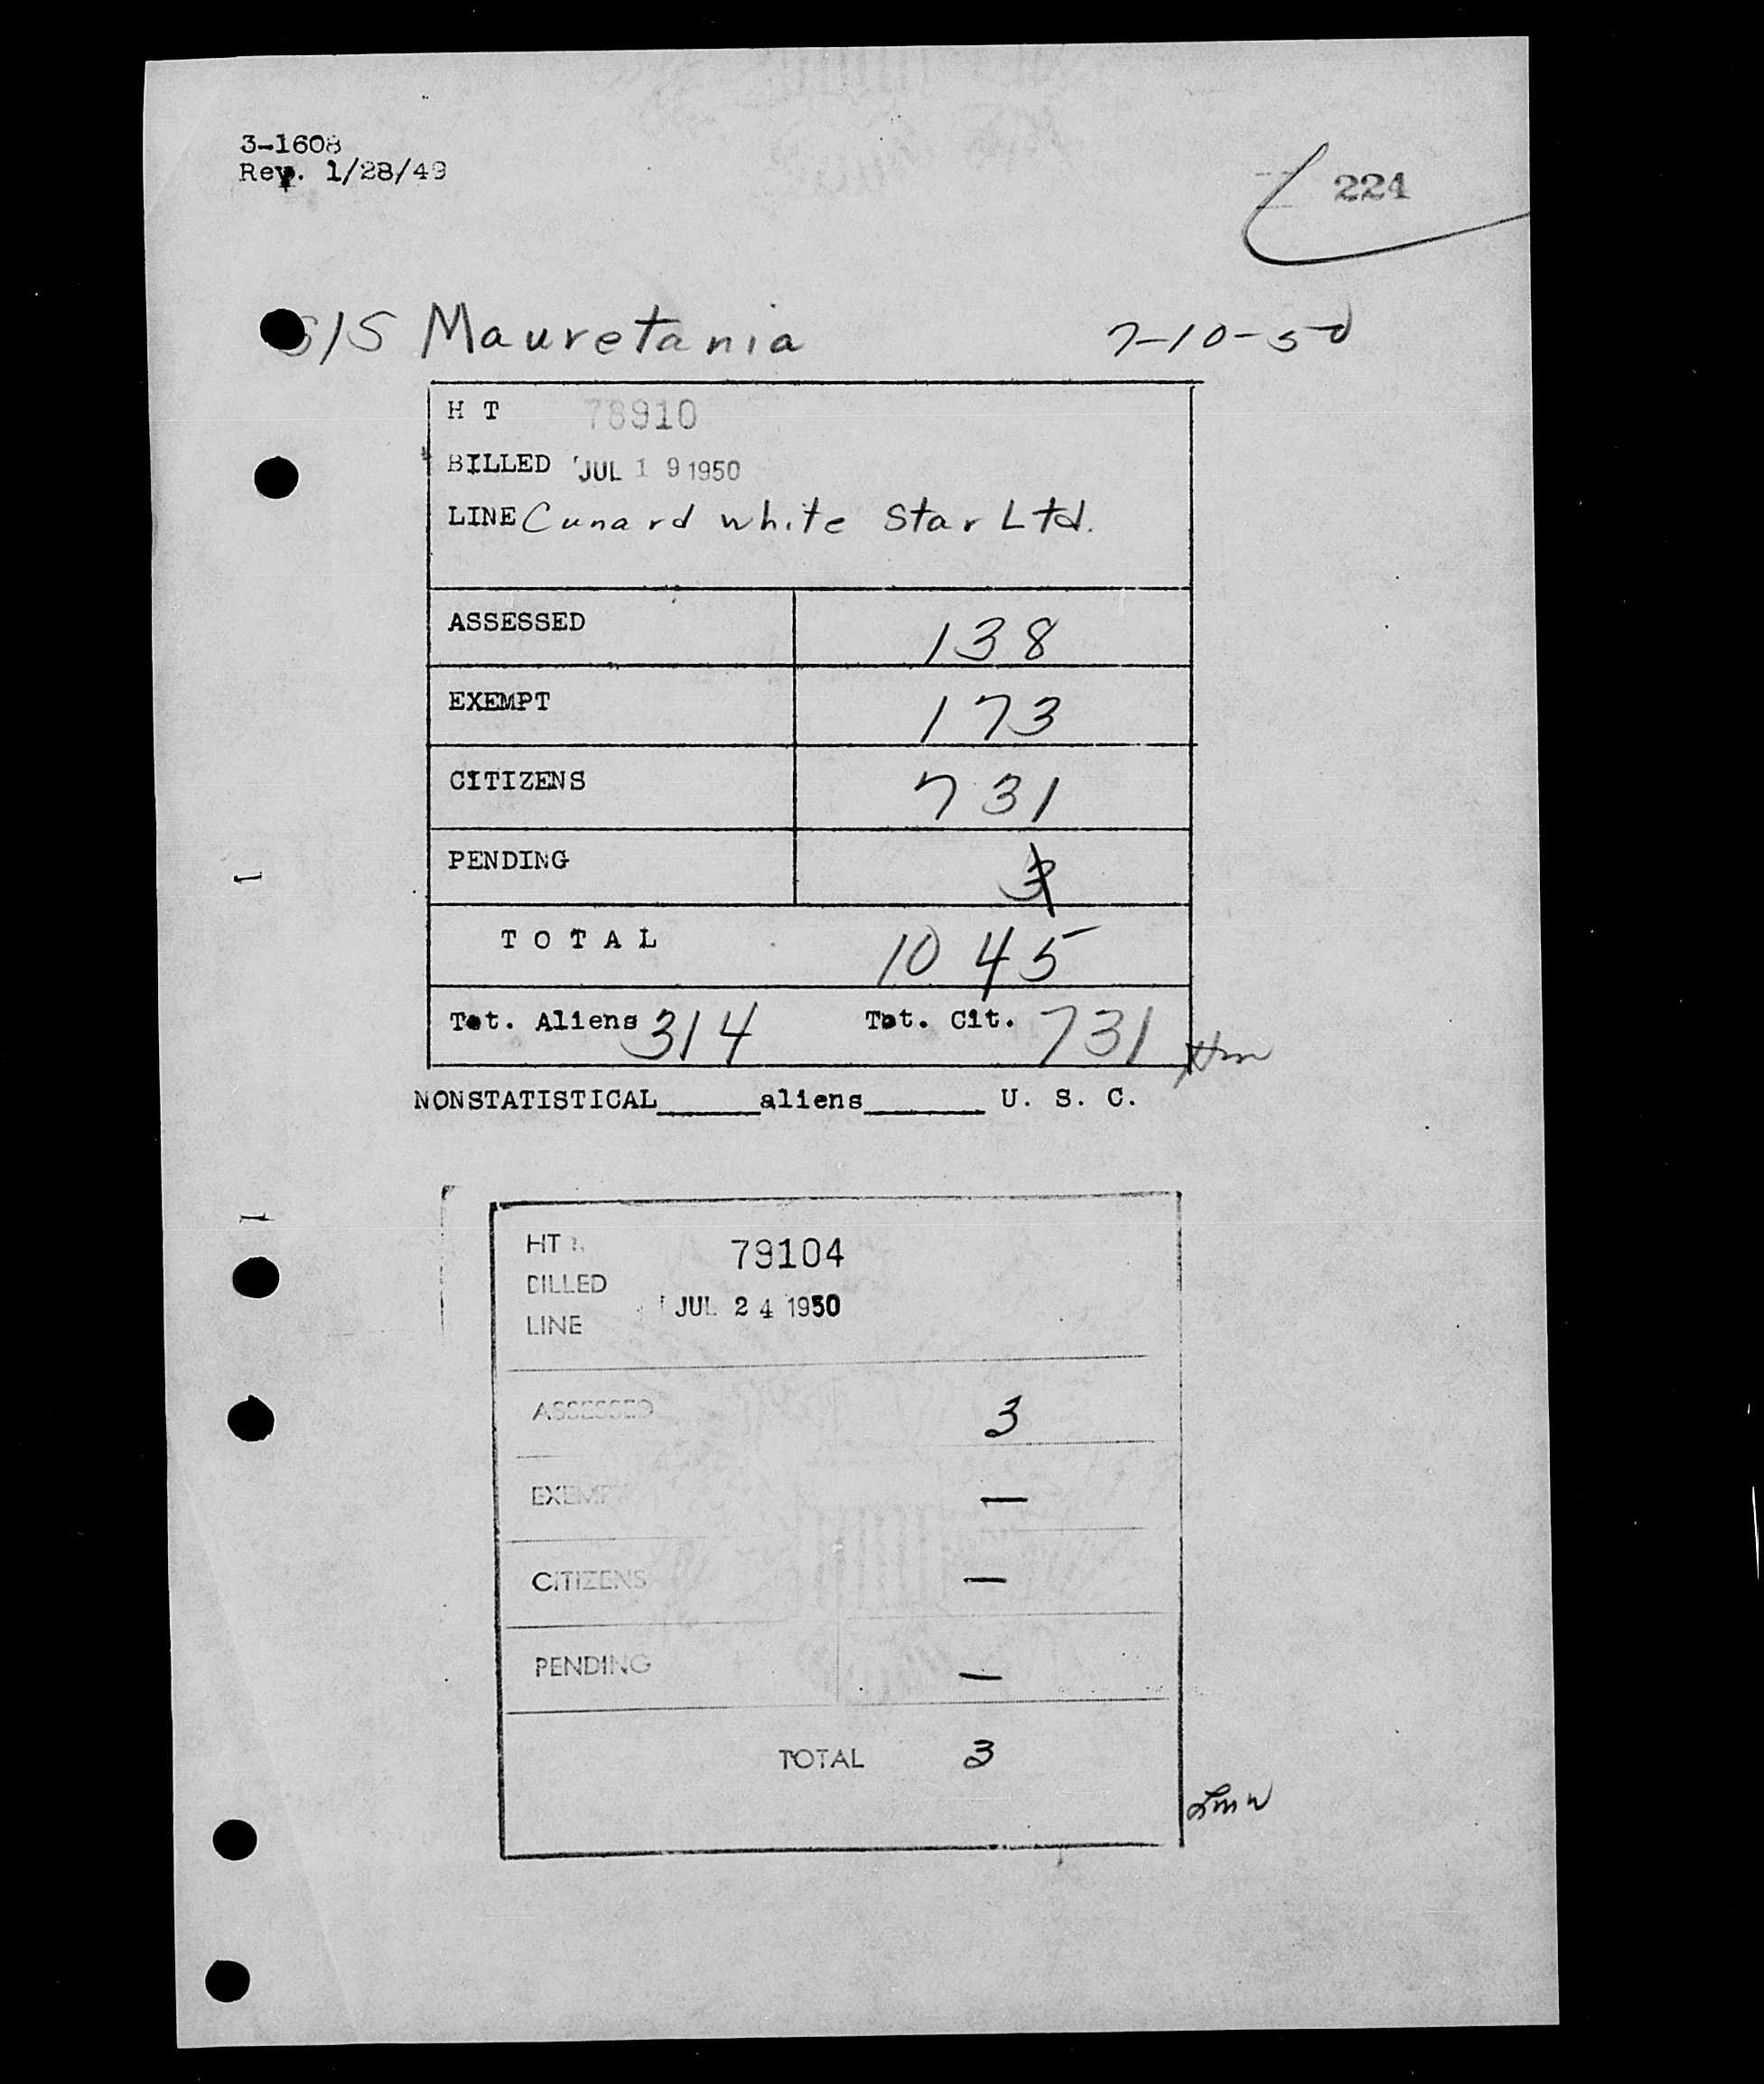 3-1608
Rev. 1/28/49
224
S/S Mauretania 7-10-50
H T 78910
BILLED JUL 19 1950
LINE Cunard white Star Ltd.
ASSESSED 138
EXEMPT 173
CITIZENS 731
PENDING 3
TOTAL 1045
Tot. Aliens 314 Tot. Cit. 731
NONSTATISTICAL______aliens_______ U. S. C.
HT 79104
BILLED
JUL 24 1950
LINE
ASSESSED 3
EXEMPT —
CITIZENS —
PENDING —
TOTAL 3